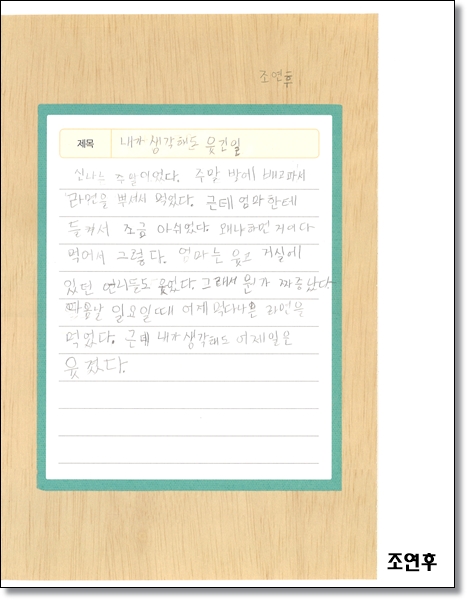 조연후
제목 내가 생각해도 웃긴일
신나는 주말이었다. 주말 밤에 배고파서
라면을 뿌셔서 먹었다. 근데 엄마한테
들켜서 조금 아쉬웠다. 왜냐하면 거이다
먹어서 그렇다. 엄마는 웃고 거실에
있던 언니들도 웃었다. 그래서 뭔가 짜증났다.
다음날 일요일때 어제 먹다나은 라면을
먹었다. 근데 내가 생각해도 어제일은
웃겼다.
조연후